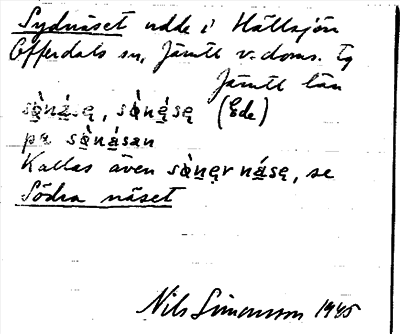 Sydnäset udde i Hällsjön
Offerdals sn, Jämtl v. doms. tg
Jämtl län
sɑ̀̀ná̱sę, sɑ̀nása̱ę (Ede)
på sɑ̀násan
Kallas även sɑ̀nęr násę, se
Södra näset
Nils Simonsson 1945